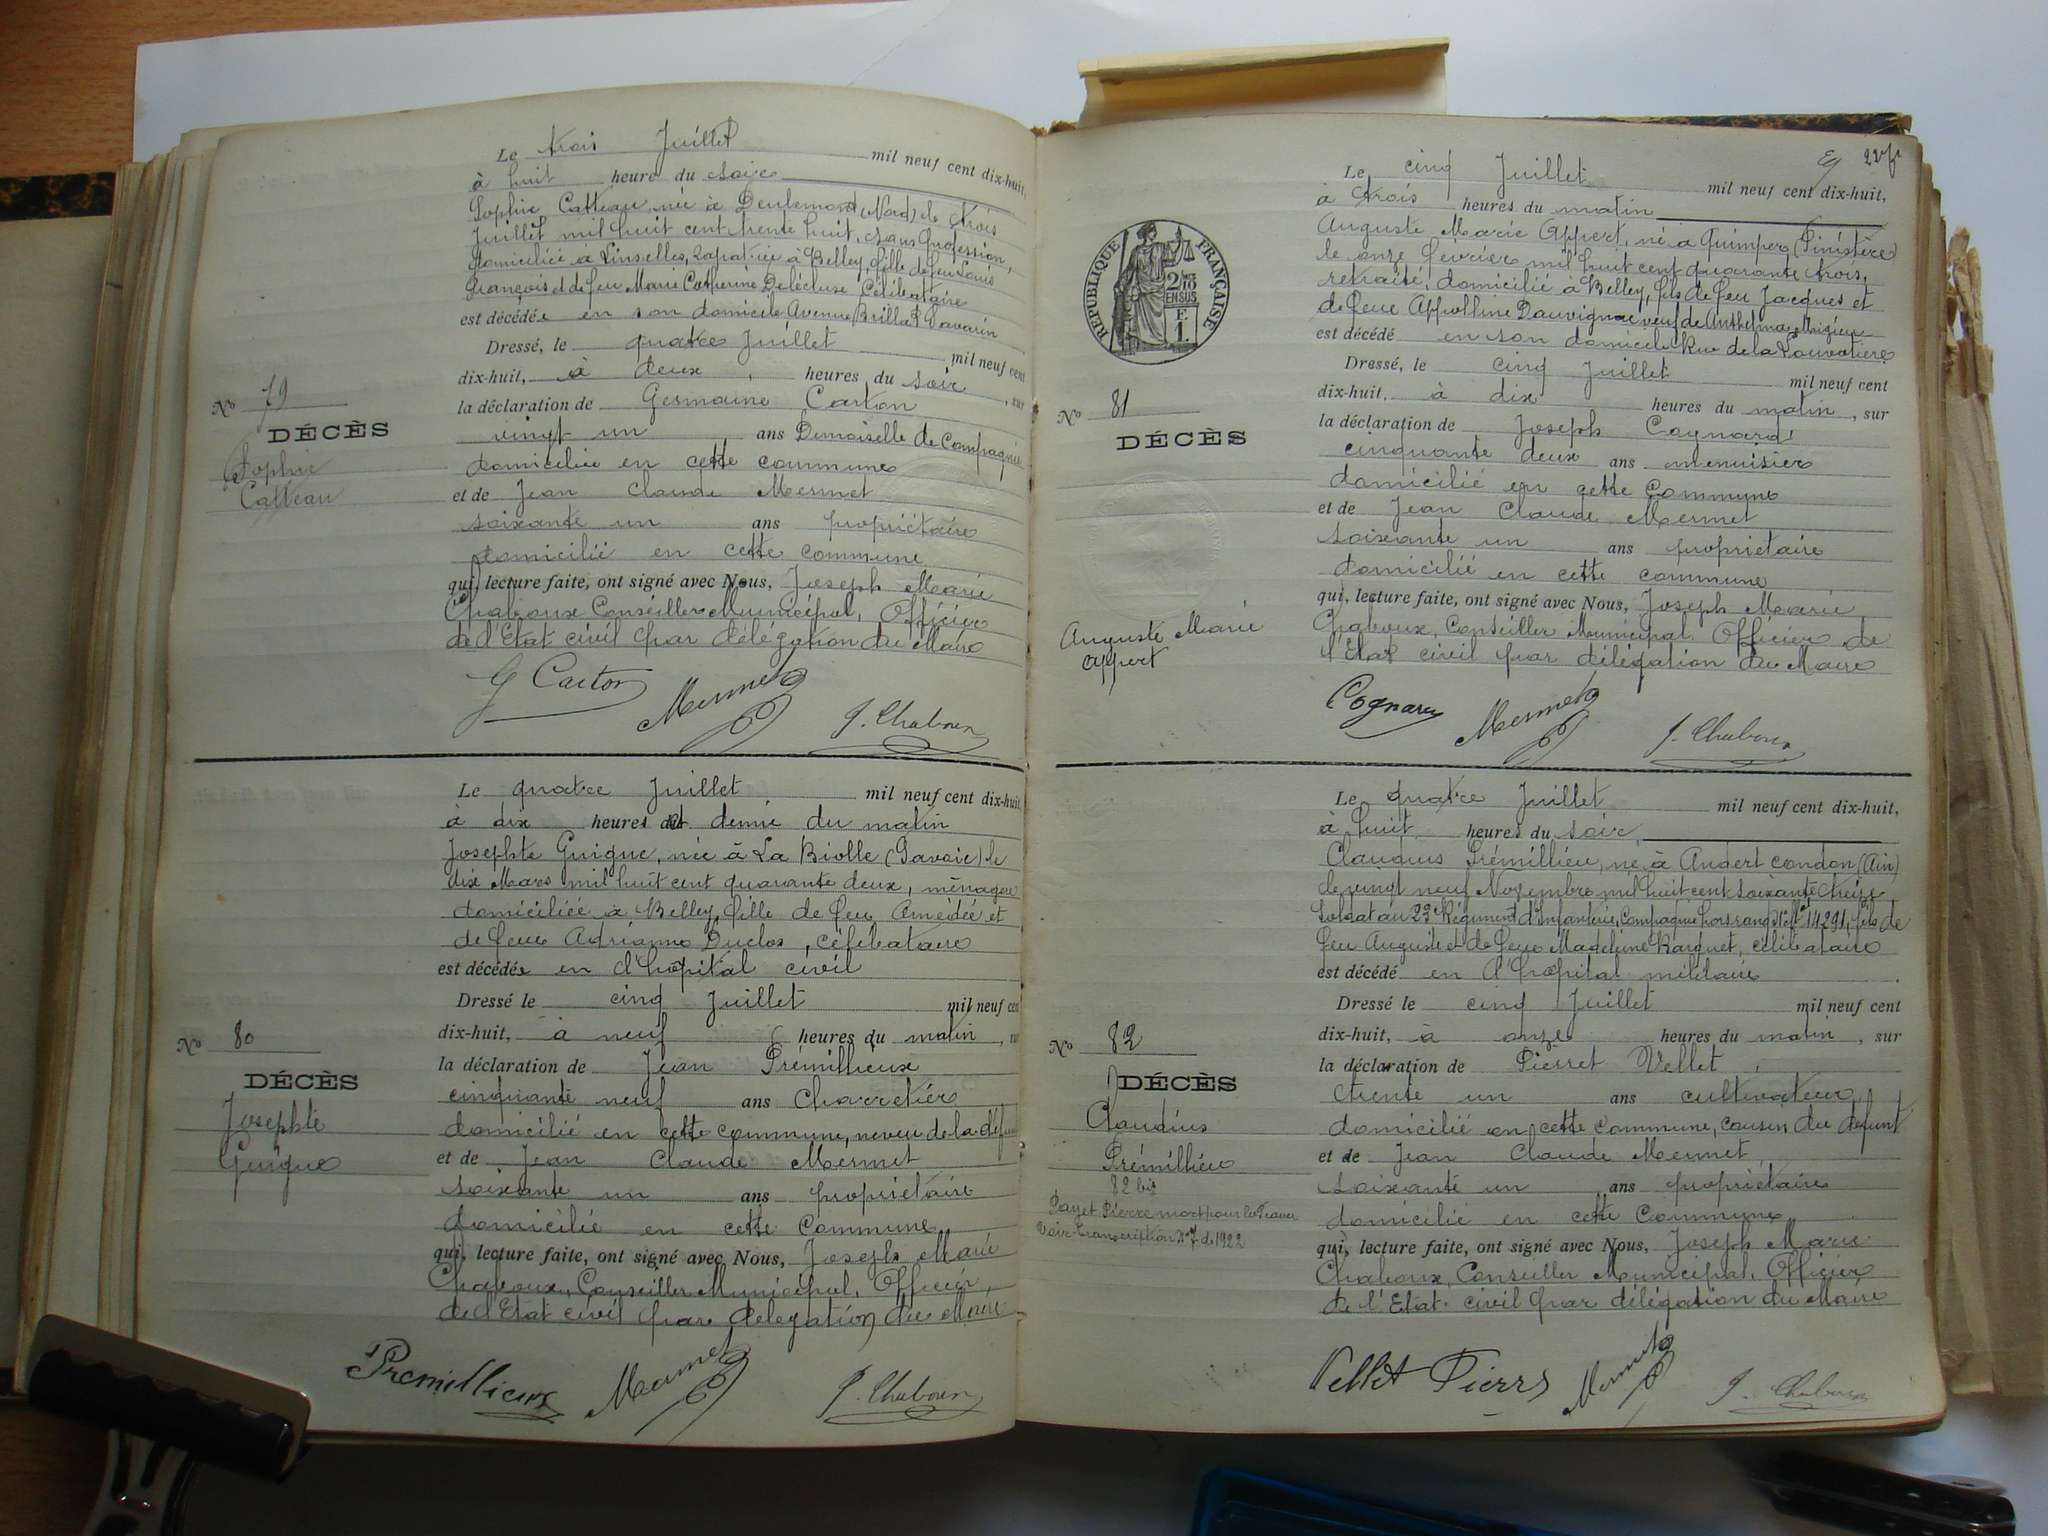 Le trois Juillet mil neuf cent dix-huit,
à huit heure du soir
Sophie Catteau, née à Deulemont (Nord) le trois
Juillet mil huit cent trente huit, sans profession,
domiciliée à Linselles, rapatriée à Belley, fille de feu Louis
François et de feu Marie Catherine Delécluse Célibataire
est décédée en son domicile Avenue Brillat Savarin
Dressé, le quatre Juillet mil neuf cent
dix-huit, à deux heures du soir, sur
la déclaration de Germaine Carton
vingt un ans Demoiselle de Compagnie
domiciliée en cette commune
et de Jean Claude Mermet
soixante un ans propriétaire
domicilié en cette commune
qui, lecture faite, ont signé avec Nous, Joseph Marie
Chaboux Conseiller Municipal, Officier
de l'Etat civil par délégation du Maire
G Carton Mermet J. Chaboux
No 79
DÉCÈS
Sophie
Catteau
Le quatre Juillet mil neuf cent dix-huit,
à dix heures et demie du matin
Josephte Guigue, née à La Biolle (Savoie) le
dix Mars mil huit cent quarante deux, ménagère
domiciliée à Belley, fille de feu Amédée et
de feue Adrianne Duclos, célibataire
est décédée en l'hôpital civil
Dressé le cinq Juillet mil neuf cent
dix-huit, à neuf heures du matin,
la déclaration de Jean Prémillieux
cinquante neuf ans Charretier
domicilié en cette commune, neveu de la
et de Jean Claude Mermet
soixante un ans propriétaire
domicilié en cette Commune
qui, lecture faite, ont signé avec Nous, Joseph Marie
Chaboux, Conseiller Municipal, Officier
de l'Etat civil par délégation du Maire
Premillieux Mermet J. Chaboux
No 80
DÉCÈS
Josephte
Guigue
Le cinq Juillet mil neuf cent dix-huit,
à trois heures du matin
Auguste Marie Appert, né à Quimper (Finistère)
le onze février mil huit cent quarante trois,
retraité, domicilié à Belley, fils de feu Jacques et
de feue Appolline Dauvignac veuf de Anthelma Migieu
est décédé en son domicile Rue de la Louvatière
Dressé, le cinq Juillet mil neuf cent
dix-huit, à dix heures du matin, sur
la déclaration de Joseph Cognard
cinquante deux ans menuisier
domicilié en cette Commune
et de Jean Claude Mermet
soixante un ans propriétaire
domicilié en cette commune
qui, lecture faite, ont signé avec Nous, Joseph Marie
Chaboux, Conseiller Municipal Officier de
l'Etat civil par délégation du Maire
Cognard Mermet J. Chaboux
RÉPUBLIQUE FRANÇAISE
2/10 EN SUS
F. 1.
No 81
DÉCÈS
Auguste Marie
Appert
Le quatre Juillet mil neuf cent dix-huit,
à huit heures du soir
Claudius Prémillieu, né à Andert condon (Ain)
le vingt neuf Novembre mil huit cent soixante treize
Soldat au 22e Régiment d'Infanterie, Compagnie hors rang, Nº Mle 14291, fils de
feu Auguste et de feue Madeleine Barquet, célibataire
est décédé en l'hôpital militaire
Dressé le cinq Juillet mil neuf cent
dix-huit, à onze heures du matin, sur
la déclaration de Pierret Vellet
trente un ans cultivateur
domicilié en cette Commune, cousin du défunt
et de Jean Claude Mermet
soixante un ans propriétaire
domicilié en cette Commune
qui, lecture faite, ont signé avec Nous, Joseph Marie
Chaboux, Conseiller Municipal, Officier
de l'Etat civil par délégation du Maire
Vellet Pierre Mermet J. Chaboux
No 82
DÉCÈS
Claudius
Prémillieu
82 bis
Payet Pierre mort pour la France
Voir transcription Nº 7 de 1922